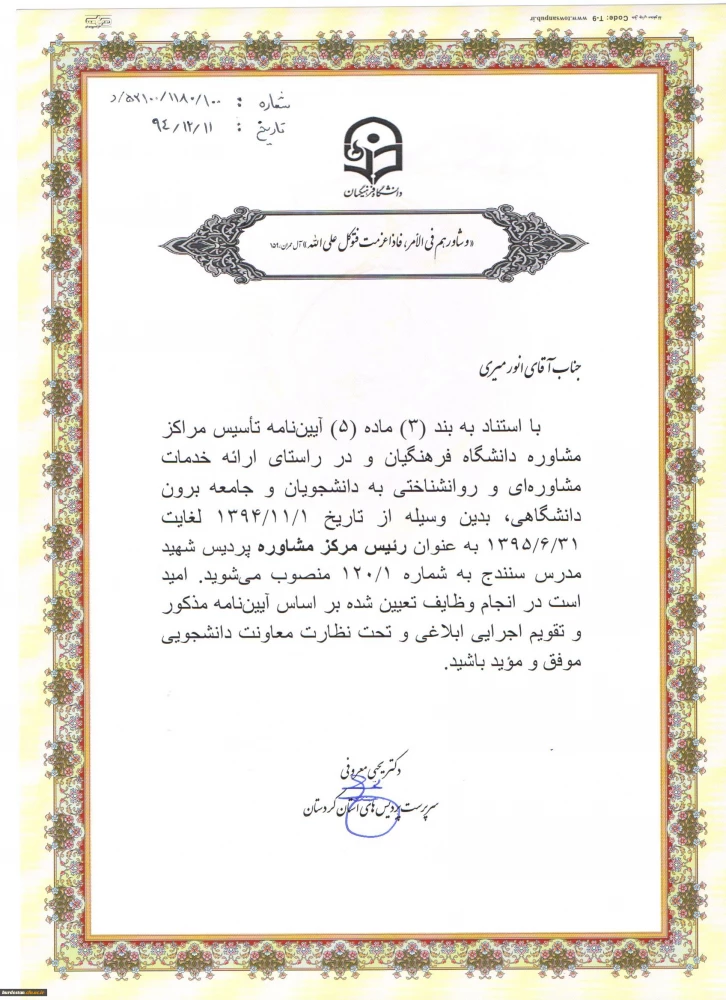 شماره : ۱۰۰/۱۱۸۰/۵۲۱۰۰/د
تاریخ : ۹۴/۱۲/۱۱
دانشگاه فرهنگیان
«و شاورهم فی الأمر، فاذا عزمت فتوکل علی الله» آل عمران، ۱۵۹
جناب آقای انور میری
با استناد به بند (۳) ماده (۵) آیین‌نامه تأسیس مراکز
مشاوره دانشگاه فرهنگیان و در راستای ارائه خدمات
مشاوره‌ای و روانشناختی به دانشجویان و جامعه برون
دانشگاهی، بدین وسیله از تاریخ ۱۳۹۴/۱۱/۱ لغایت
۱۳۹۵/۶/۳۱ به عنوان رئیس مرکز مشاوره پردیس شهید
مدرس سنندج به شماره ۱۲۰/۱ منصوب می‌شوید. امید
است در انجام وظایف تعیین شده بر اساس آیین‌نامه مذکور
و تقویم اجرایی ابلاغی و تحت نظارت معاونت دانشجویی
موفق و مؤید باشید.
دکتر یحیی معروفی
سرپرست پردیس های استان کردستان
www.towsanpub.ir Code: T-9